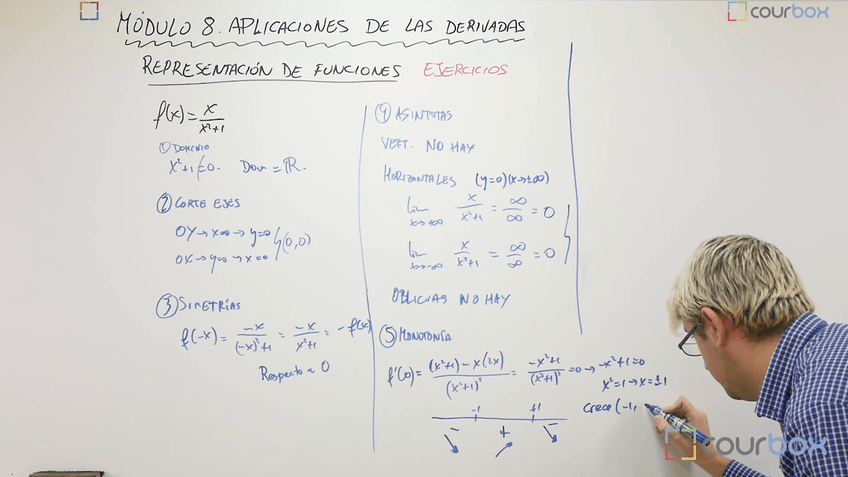 courbox
MÓDULO 8. APLICACIONES DE LAS DERIVADAS.
REPRESENTACIÓN DE FUNCIONES EJERCICIOS
f(x) = x/(x²+1)
① DOMINIO
x²+1≠0. Dom = ℝ.
② CORTE EJES
OY → x=0 → y=0 (0,0)
OX → y=0 → x=0
③ SIMETRÍAS
f(-x) = -x/((-x)²+1) = -x/(x²+1) = -f(x)
Respecto a O
④ ASÍNTOTAS
VERT. NO HAY
HORIZONTALES (y=0)(x→±∞)
lim x→+∞ x/(x²+1) = ∞/∞ = 0
lim x→-∞ x/(x²+1) = ∞/∞ = 0
OBLICUAS NO HAY
⑤ MONOTONÍA
f'(x) = ((x²+1) - x(2x))/(x²+1)² = (-x²+1)/(x²+1)² = 0 → -x²+1=0
x²=1 → x=±1
-1 +1
- + -
Crece (-1,
courbox